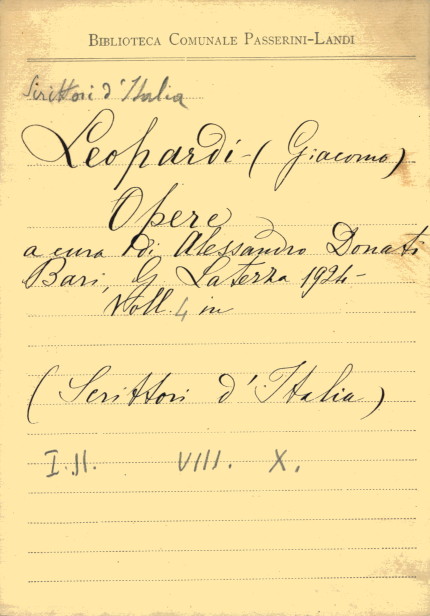 BIBLIOTECA COMUNALE PASSERINI-LANDI
Scrittori d'Italia
Leopardi - (Giacomo)
Opere
a cura di Alessandro Donati
Bari, G. Laterza 1924-
Voll. 4 in
(Scrittori d'Italia)
I. II. VIII. X.